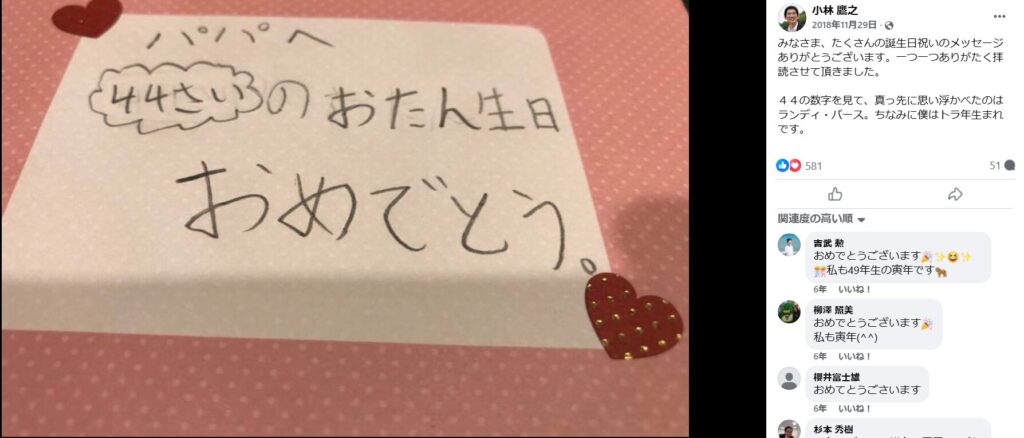 パパへ
44さいのおたん生日
おめでとう。
小林 鷹之
2018年11月29日
みなさま、たくさんの誕生日祝いのメッセージ
ありがとうございます。一つ一つありがたく拝
読させて頂きました。
４４の数字を見て、真っ先に思い浮かべたのは
ランディ・バース。ちなみに僕はトラ年生まれ
です。
581
51
関連度の高い順
吉武 勲
おめでとうございます🎉✨😆✨
🎊私も49年生の寅年です🐅
6年 いいね！
柳澤 照美
おめでとうございます🎉
私も寅年(^^)
6年 いいね！
櫻井富士雄
おめてとうごさいます
6年 いいね！
杉本 秀樹